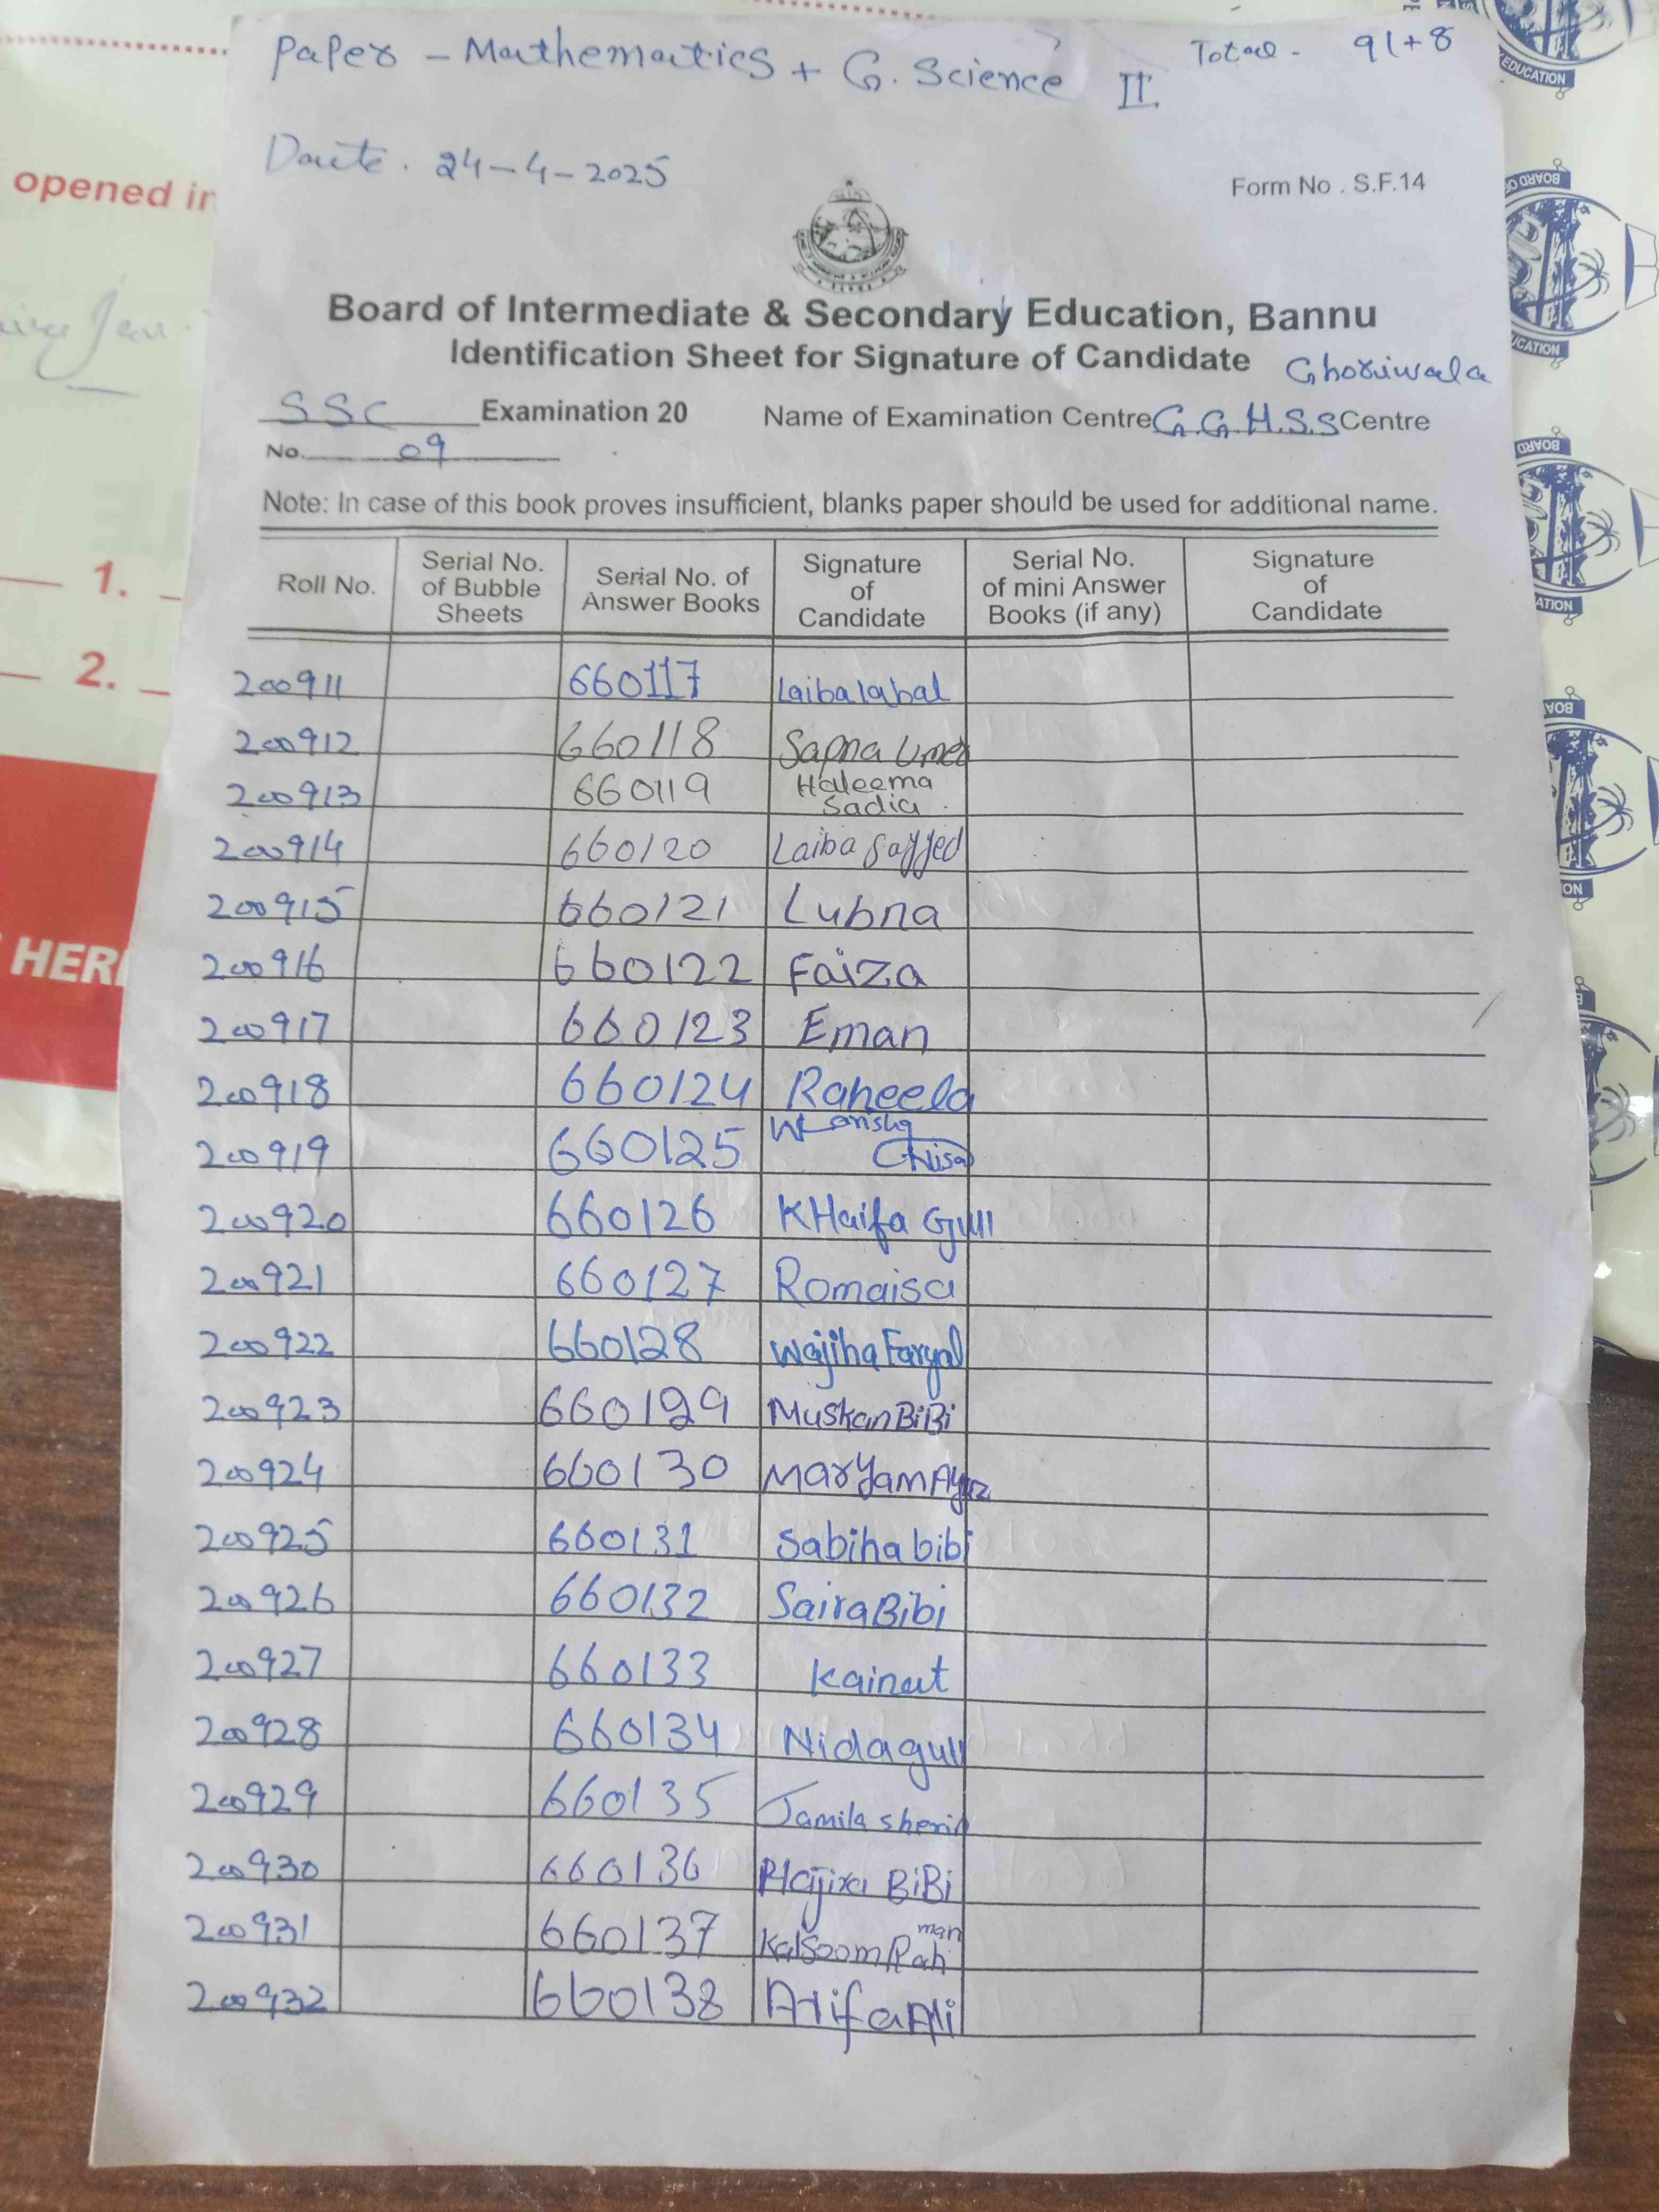 Paper - Mathematics + G. Science II
Total - 91+8
Date. 24-4-2025
Form No . S.F.14
Board of Intermediate & Secondary Education, Bannu
Identification Sheet for Signature of Candidate
Ghoriwala
SSC Examination 20 Name of Examination Centre G.G.H.S.S Centre
No. 09
Note: In case of this book proves insufficient, blanks paper should be used for additional name.
Roll No. Serial No. of Bubble Sheets Serial No. of Answer Books Signature of Candidate Serial No. of mini Answer Books (if any) Signature of Candidate
200911 660117 Laiba Iqbal
200912 660118 Sapna Umer
200913 660119 Haleema Sadia
200914 660120 Laiba
200915 660121 Lubna
200916 660122 Faiza
200917 660123 Eman
200918 660124 Raheela
200919 660125
200920 660126 KHaifa Gull
200921 660127 Romaisa
200922 660128 Wajiha Faryal
200923 660129 Muskan BiBi
200924 660130 Maryam Ayaz
200925 660131 Sabiha bibi
200926 660132 Saira Bibi
200927 660133 Kainat
200928 660134 Nida gull
200929 660135 Jamila sherin
200930 660136 Hajira BiBi
200931 660137 Kalsoom Rahman
200932 660138 Atifa Ali
opened in
1.
2.
HERE
EDUCATION
BOARD OF
UCATION
BOARD
ATION
BOA
ON